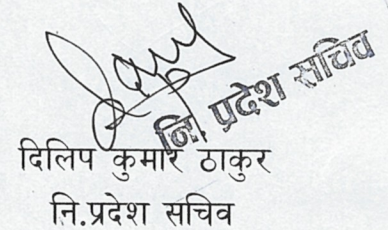 नि. प्रदेश सचिव
दिलिप कुमार ठाकुर
नि.प्रदेश सचिव